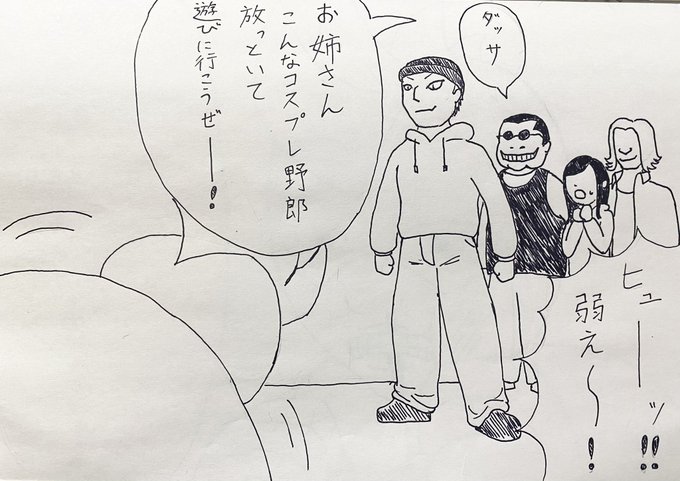 ダッサ
お姉さん
こんなコスプレ野郎
放っといて
遊びに行こうぜーー!
ヒューーッ!!
弱え〜!